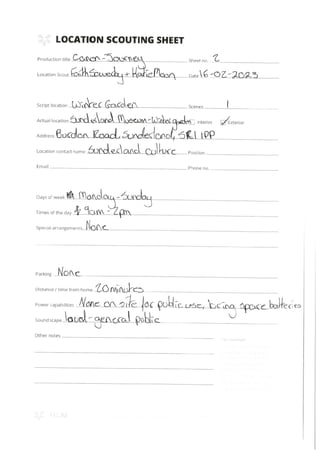 LOCATION SCOUTING SHEET
Production title Coron - Journey Sheet no. 2
Location Scout Faith Sowerby + Katie Moon Date 16-02-2023
Script location Winter Garden Scenes 1
Actual location Sunderland Museum - Winter garden Interior ✓ Exterior
Address Burdon Road, Sunderland, SR1 1PP
Location contact name Sunderland Culture Position
Email Phone no.
Days of week Monday - Sunday
Times of the day 9am - 2pm
Special arrangements None
Parking None
Distance / time from home 20 minutes
Power capabilities None on site for public use, bring spare batteries
Soundscape loud - general public
Other notes